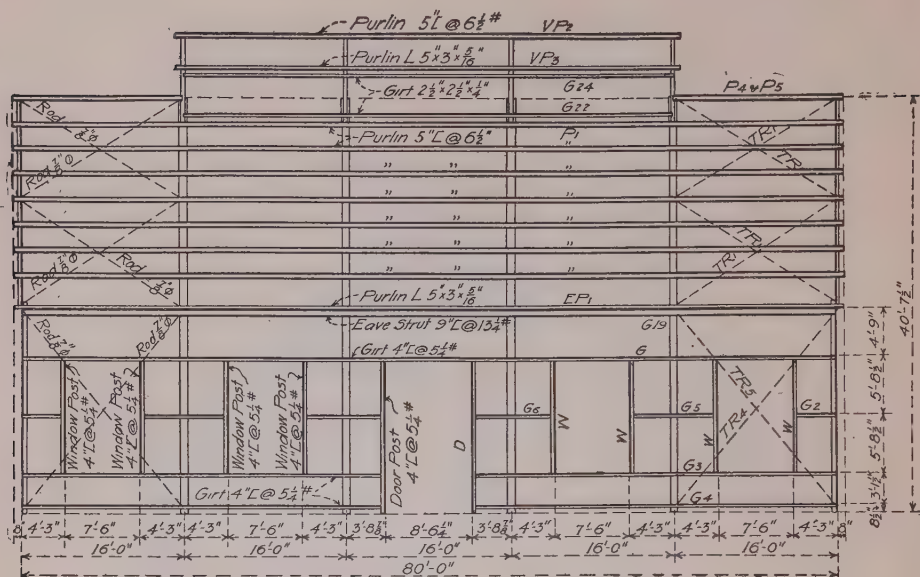 Purlin 5"[ @ 6½# VP2
Purlin L 5"x3"x5/16" VP3
Girt 2½"x2½"x¼" G24
G22
P4 & P5
Purlin 5"[ @ 6½" P1
Rod ⅞"ϕ
TR1
Rod ⅞"ϕ
TR1
" " "
" " "
" " "
" " "
" " "
" " "
Rod ⅞"ϕ
Rod ⅞"ϕ
TR1
TR1
Purlin L 5"x3"x5/16" EP1
Eave Strut 9"[@13¼# G19
Girt 4"[@5¼# G
Rod ⅞"ϕ
Rod ⅞"ϕ
Window Post 4"[@5¼#
Window Post 4"[@5¼#
Window Post 4"[@5¼#
Window Post 4"[@5¼#
Door Post 4"[@5¼#
D
G6
W
W
G5
W
W
G2
TR5
TR4
G3
Girt 4"[@5¼#
G4
40'-7½"
4'-9"
5'-8½"
5'-8½"
3'-1½"
8½"
8" 4'-3" 7'-6" 4'-3" 4'-3" 7'-6" 4'-3" 3'-8⅞" 8'-6¼" 3'-8⅞" 4'-3" 7'-6" 4'-3" 4'-3" 7'-6" 4'-3" 8"
16'-0" 16'-0" 16'-0" 16'-0" 16'-0"
80'-0"